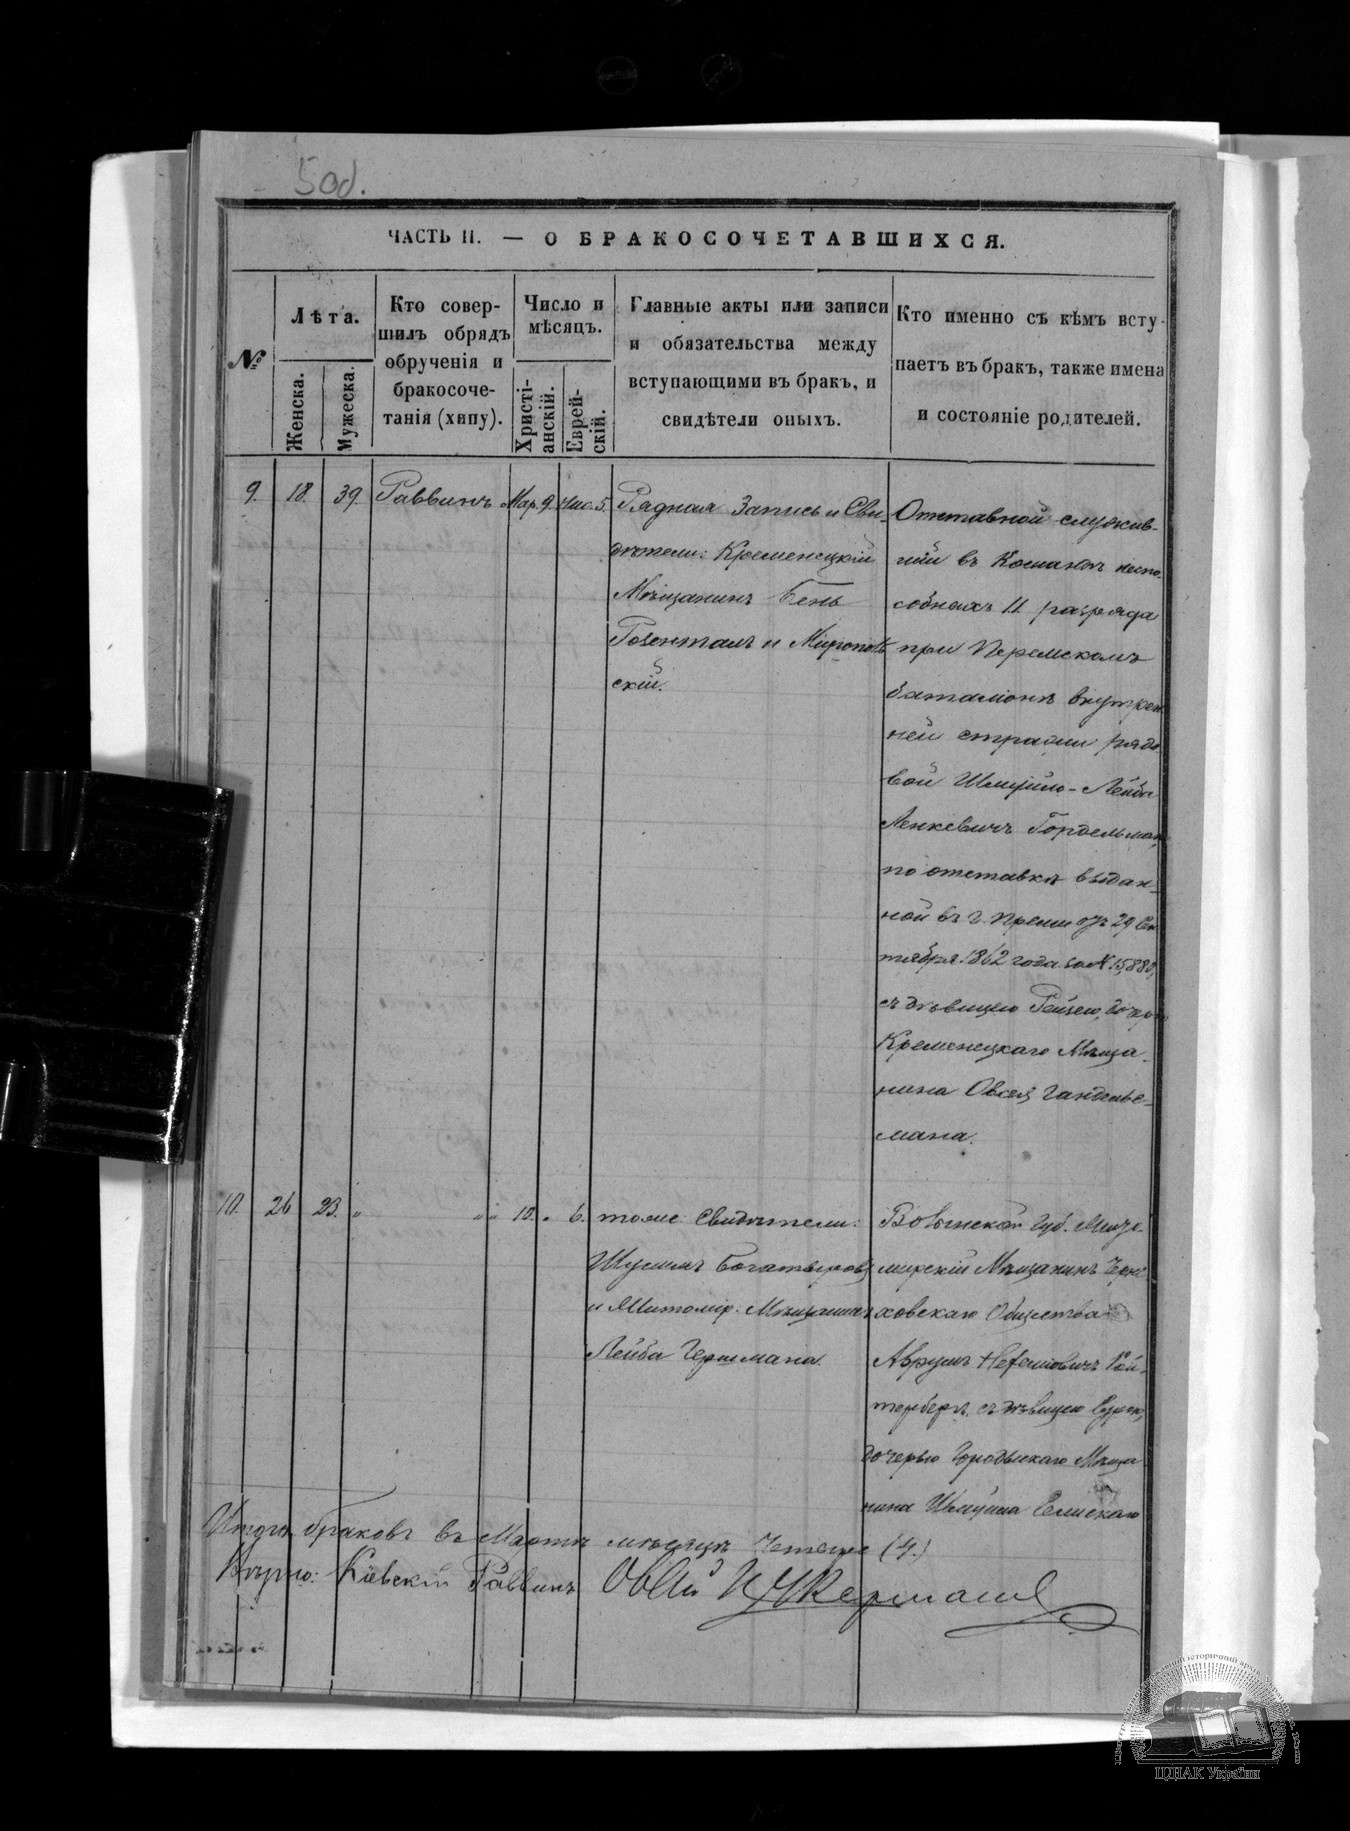 5 об.
ЧАСТЬ II. — О БРАКОСОЧЕТАВШИХСЯ.
№
Лѣта.
Женска.
Мужеска.
Кто совер-
шилъ обрядъ
обрученія и
бракосоче-
танія (хипу).
Число и
мѣсяцъ.
Христі-
анскій.
Еврей-
скій.
Главные акты или записи
и обязательства между
вступающими въ бракъ, и
свидѣтели оныхъ.
Кто именно съ кѣмъ всту-
паетъ въ бракъ, также имена
и состояніе родителей.
9. 18. 39. Раввинъ Мар. 9. 5.
Рядная Запись и Сви-
дѣтели: Кременецкій
Мѣщанинъ Бень
Розенталь и
скій.
Отставной служив-
шій въ неспо-
собныхъ II разряда
при Пермскомъ
баталіонѣ внутрен-
ней стражи рядо
вой Шмуйло-Лейба
Гордельман,
по отставкѣ выдан-
ной въ г. Перми отъ 29 Сен
тября 1862 года за № 15,880,
съ дѣвицею Рейзею, дочерью
Кременецкаго Мѣща-
нина Овсея Гандельс-
мана.
10. 26 23. " " " 10. " 6.
тоже Свидѣтели:
Богатыровъ
и Житомір. Мѣщанинъ
Лейба Гершмана.
Волынской Губ.
мирскій Мѣщанинъ Черня
ховскаго Общества
Аврумъ Рой-
тербергъ съ дѣвицею
дочерью Городыскаго Мѣща
нина Шмуйла
Итого браковъ въ Мартѣ мѣсяцѣ Четыре (4.)
Вѣрно: Кіевскій Раввинъ Овсій Цукерманъ
ЦДІАК України